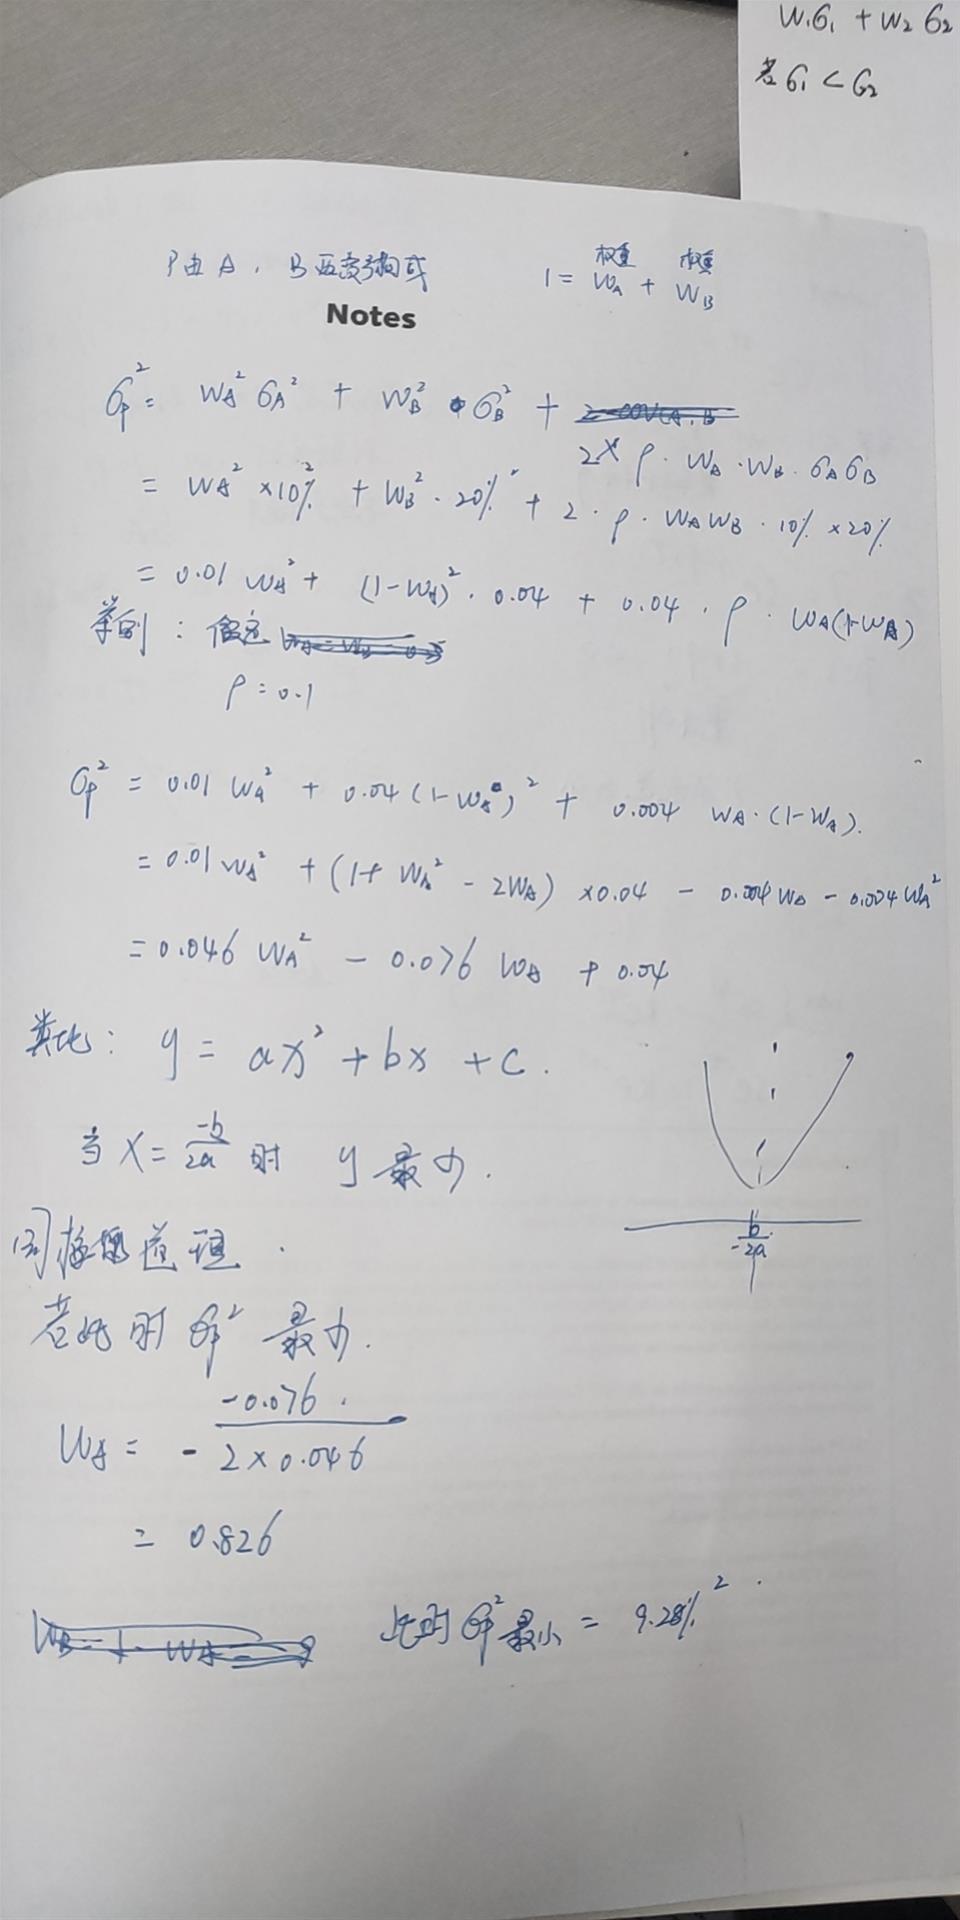 W₁σ₁ + W₂σ₂
若σ₁ < σ₂
P由A、B两资产构成
权重 权重
1 = W_A + W_B
Notes
σ_P² = W_A²σ_A² + W_B² · σ_B² +
2 × ρ · W_A · W_B · σ_Aσ_B
= W_A² × 10%² + W_B² · 20%² + 2 · ρ · W_A W_B · 10% × 20%
= 0.01 W_A² + (1-W_A)² · 0.04 + 0.04 · ρ · W_A(1-W_A)
举例：假定
ρ = 0.1
σ_P² = 0.01 W_A² + 0.04 (1-W_A)² + 0.004 W_A · (1-W_A).
= 0.01 W_A² + (1 + W_A² - 2W_A) × 0.04 - 0.004 W_A - 0.004 W_A²
= 0.046 W_A² - 0.076 W_A + 0.04
类比：y = ax² + bx + c.
当 x = -b/2a 时 y 最小.
-b/2a
同样的道理.
若此时 σ_P² 最小.
W_A = - -0.076/(2 × 0.046)
= 0.826
此时 σ_P² 最小 = 9.28%².